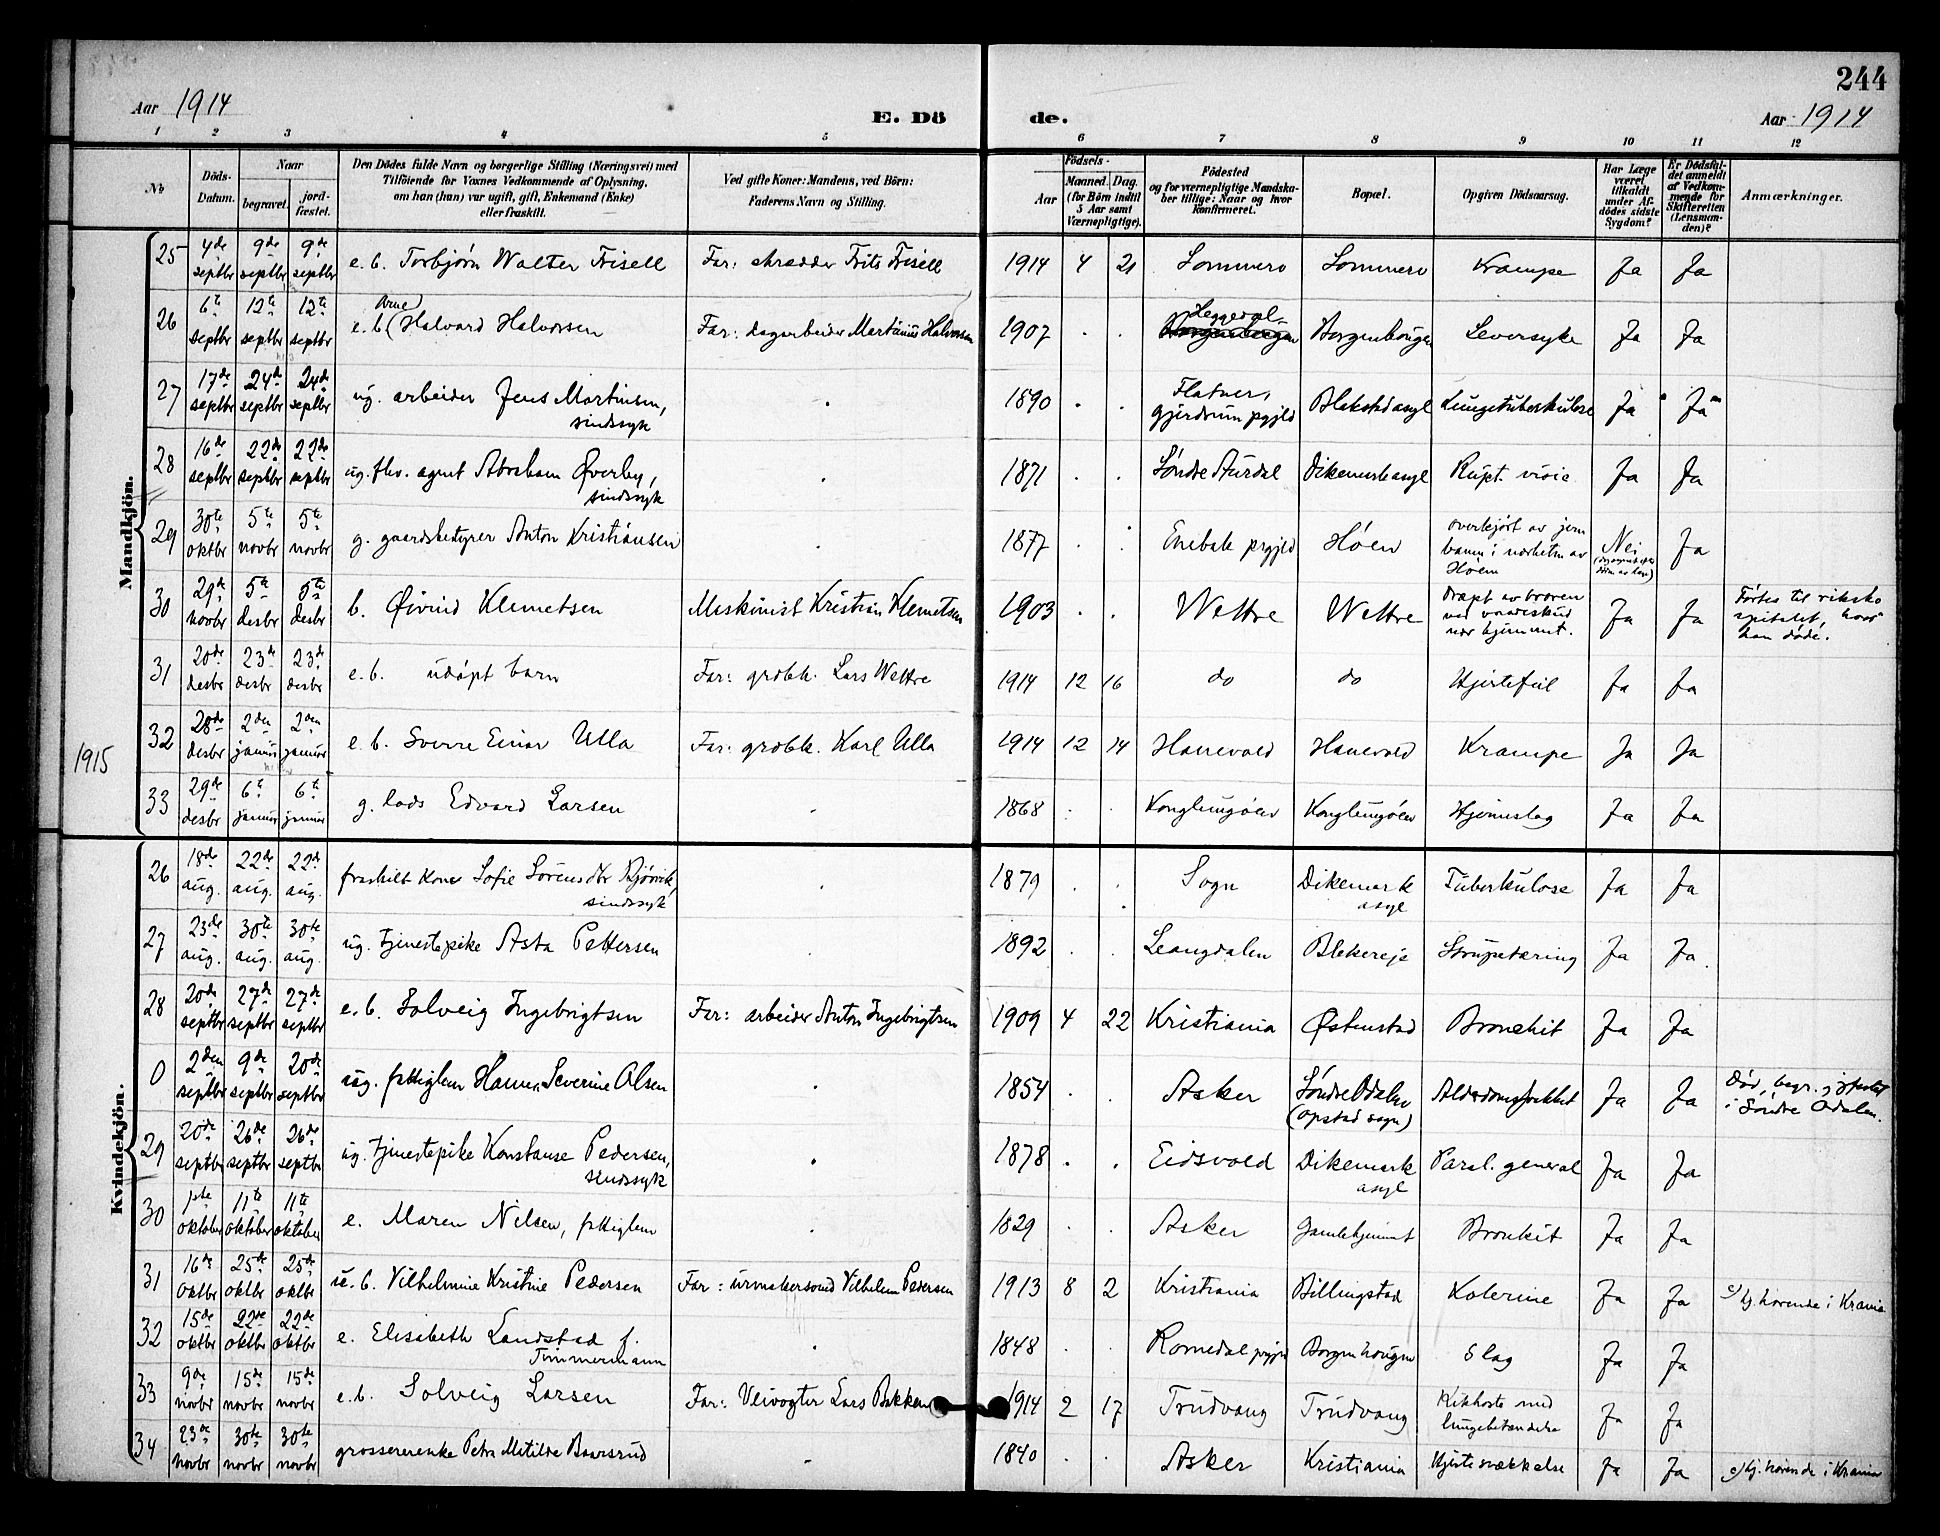 244
Aar 1914
E. Dö de.
Aar 1914
1 2 3 4 5 6 7 8 9 10 11 12
No
Döds-Datum.
Naar
begravet.
jord-fæstet.
Den Dödes fulde Navn og borgerlige Stilling (Næringsvei) med
Tilföiende for Voxnes Vedkommende af Oplysning,
om han (hun) var ugift, gift, Enkemand (Enke)
eller fraskilt.
Ved gifte Koner: Mandens, ved Börn:
Faderens Navn og Stilling.
Födsels-
Aar
Maaned. Dag.
(for Börn indtil
5 Aar samt
Værnepligtige).
Födested
og for værnepligtige Mandska-
ber tillige: Naar og hvor
konfirmeret.
Bopæl.
Opgiven Dödsaarsag.
Har Læge
været
tilkaldt
under Af-
dödes sidste
Sygdom?
Er Dödsfal-
det anmeldt
af Vedkom-
mende for
Skifteretten
(Lensman-
den)?
Anmærkninger.
Mandkjön.
25 4de septbr 9de septbr 9de septbr e. b. Torbjørn Walter Frisell Far: skrædder Frits Frisell 1914 4 21 Sommero Sommero Krampe Ja Ja
26 6te septbr 12te septbr 12te septbr e. b. (Arne) Halvard Halvorsen Far: dagarbeider Martinius Halvorsen 1907 . . Borgenhougen Borgenhougen Leversyke Ja Ja
27 17de septbr 24de septbr 24de septbr ug. arbeider Jens Martinsen, sindssyk . 1890 . . Flatner, gjerdrum pgjld Blakstad asyl Lungetuberkulose Ja Ja
28 16de septbr 22de septbr 22de septbr ug. fhv. agent Abraham Øverby, sindssyk . 1871 . . Søndre Aurdal Dikemark asyl Rupt. Ja Ja
29 30te oktbr 5te novbr 5te novbr g. gaardsbestyrer Anton Kristiansen . 1877 . . Enebak prgjld Høen overkjørt av jernbanen i nærheten av Høen Nei Ja
30 29de novbr 5te desbr 5te desbr b. Øivind Klemetsen Maskinist Kristian Klemetsen 1903 . . Wettre Wettre Dræpt av broren ved vaadeskud nær hjemmet. Ja Ja Førtes til rikshospitalet, hvor han døde.
31 20de desbr 23de desbr 23de desbr e. b. udøpt barn Far: grdbk. Lars Wettre 1914 12 16 do do Hjertefeil Ja Ja
1915
32 28de desbr 2den januar 2den januar e. b. Sverre Einar Ulla Far: grdbk. Karl Ulla 1914 12 14 Hanevold Hanevold Krampe Ja Ja
33 29de desbr 6te januar 6te januar g. lods Edvard Larsen . 1868 . . Konglungøen Konglungøen Hjerneslag Ja Ja
Kvindekjön.
26 18de aug. 22de aug. 22de aug. fraskilt kone Sofie Sørensdtr Bjørvik, sindssyk . 1879 . . Sogn Dikemark asyl Tuberkulose Ja Ja
27 23de aug. 30te aug. 30te aug. ug. tjenestepike Asta Pettersen 1892 . . Leangdalen Blekereje Strupetæring Ja Ja
28 20de septbr 27de septbr 27de septbr e. b. Solveig Ingebrigtsen Far: arbeider Anton Ingebrigtsen 1909 4 22 Kristiania Østenstad Bronchit Ja Ja
0 2den septbr 9de septbr 20de septbr ug. fattiglem Severine Olsen . 1854 . . Asker Søndre Odalen (Opstad sogn) Alderdomssvakhet Ja Ja Død, begr. i Søndre Odalen.
29 20de septbr 26de septbr 26de septbr ug. tjenestepike Konstanse Pedersen, sindssyk . 1878 . . Eidsvold Dikemark asyl Paral. general Ja Ja
30 1ste oktober 11te oktober 11te oktober e. Maren Nilsen, fattiglem . 1829 . . Asker Gamlehjemmet Bronkit Ja Ja
31 16de oktbr 25de oktbr 25de oktbr u. b. Vilhelmine Kristine Pedersen Far: urmakersvend Vilhelm Pedersen 1913 8 2 Kristiania Billingstad Kolerine Ja Ja hj. hørende i Krania
32 15de oktbr 22de oktbr 22de oktbr e. Elisabeth Landstad f. Timmermann . 1848 . . Romedal pgjld Borgenhougen Slag Ja Ja
33 9de novbr 15de novbr 15de novbr e. b. Solveig Larsen Far: Veivogter Lars Bakken 1914 2 17 Trudvang Trudvang Kikhoste med lungebetændelse Ja Ja
34 23de novbr 30te novbr 30te novbr grossererenke Petra Matilde Baarsrud . 1840 . . Asker Kristiania Hjertesvækkelse Ja Ja hj. hørende i Krania